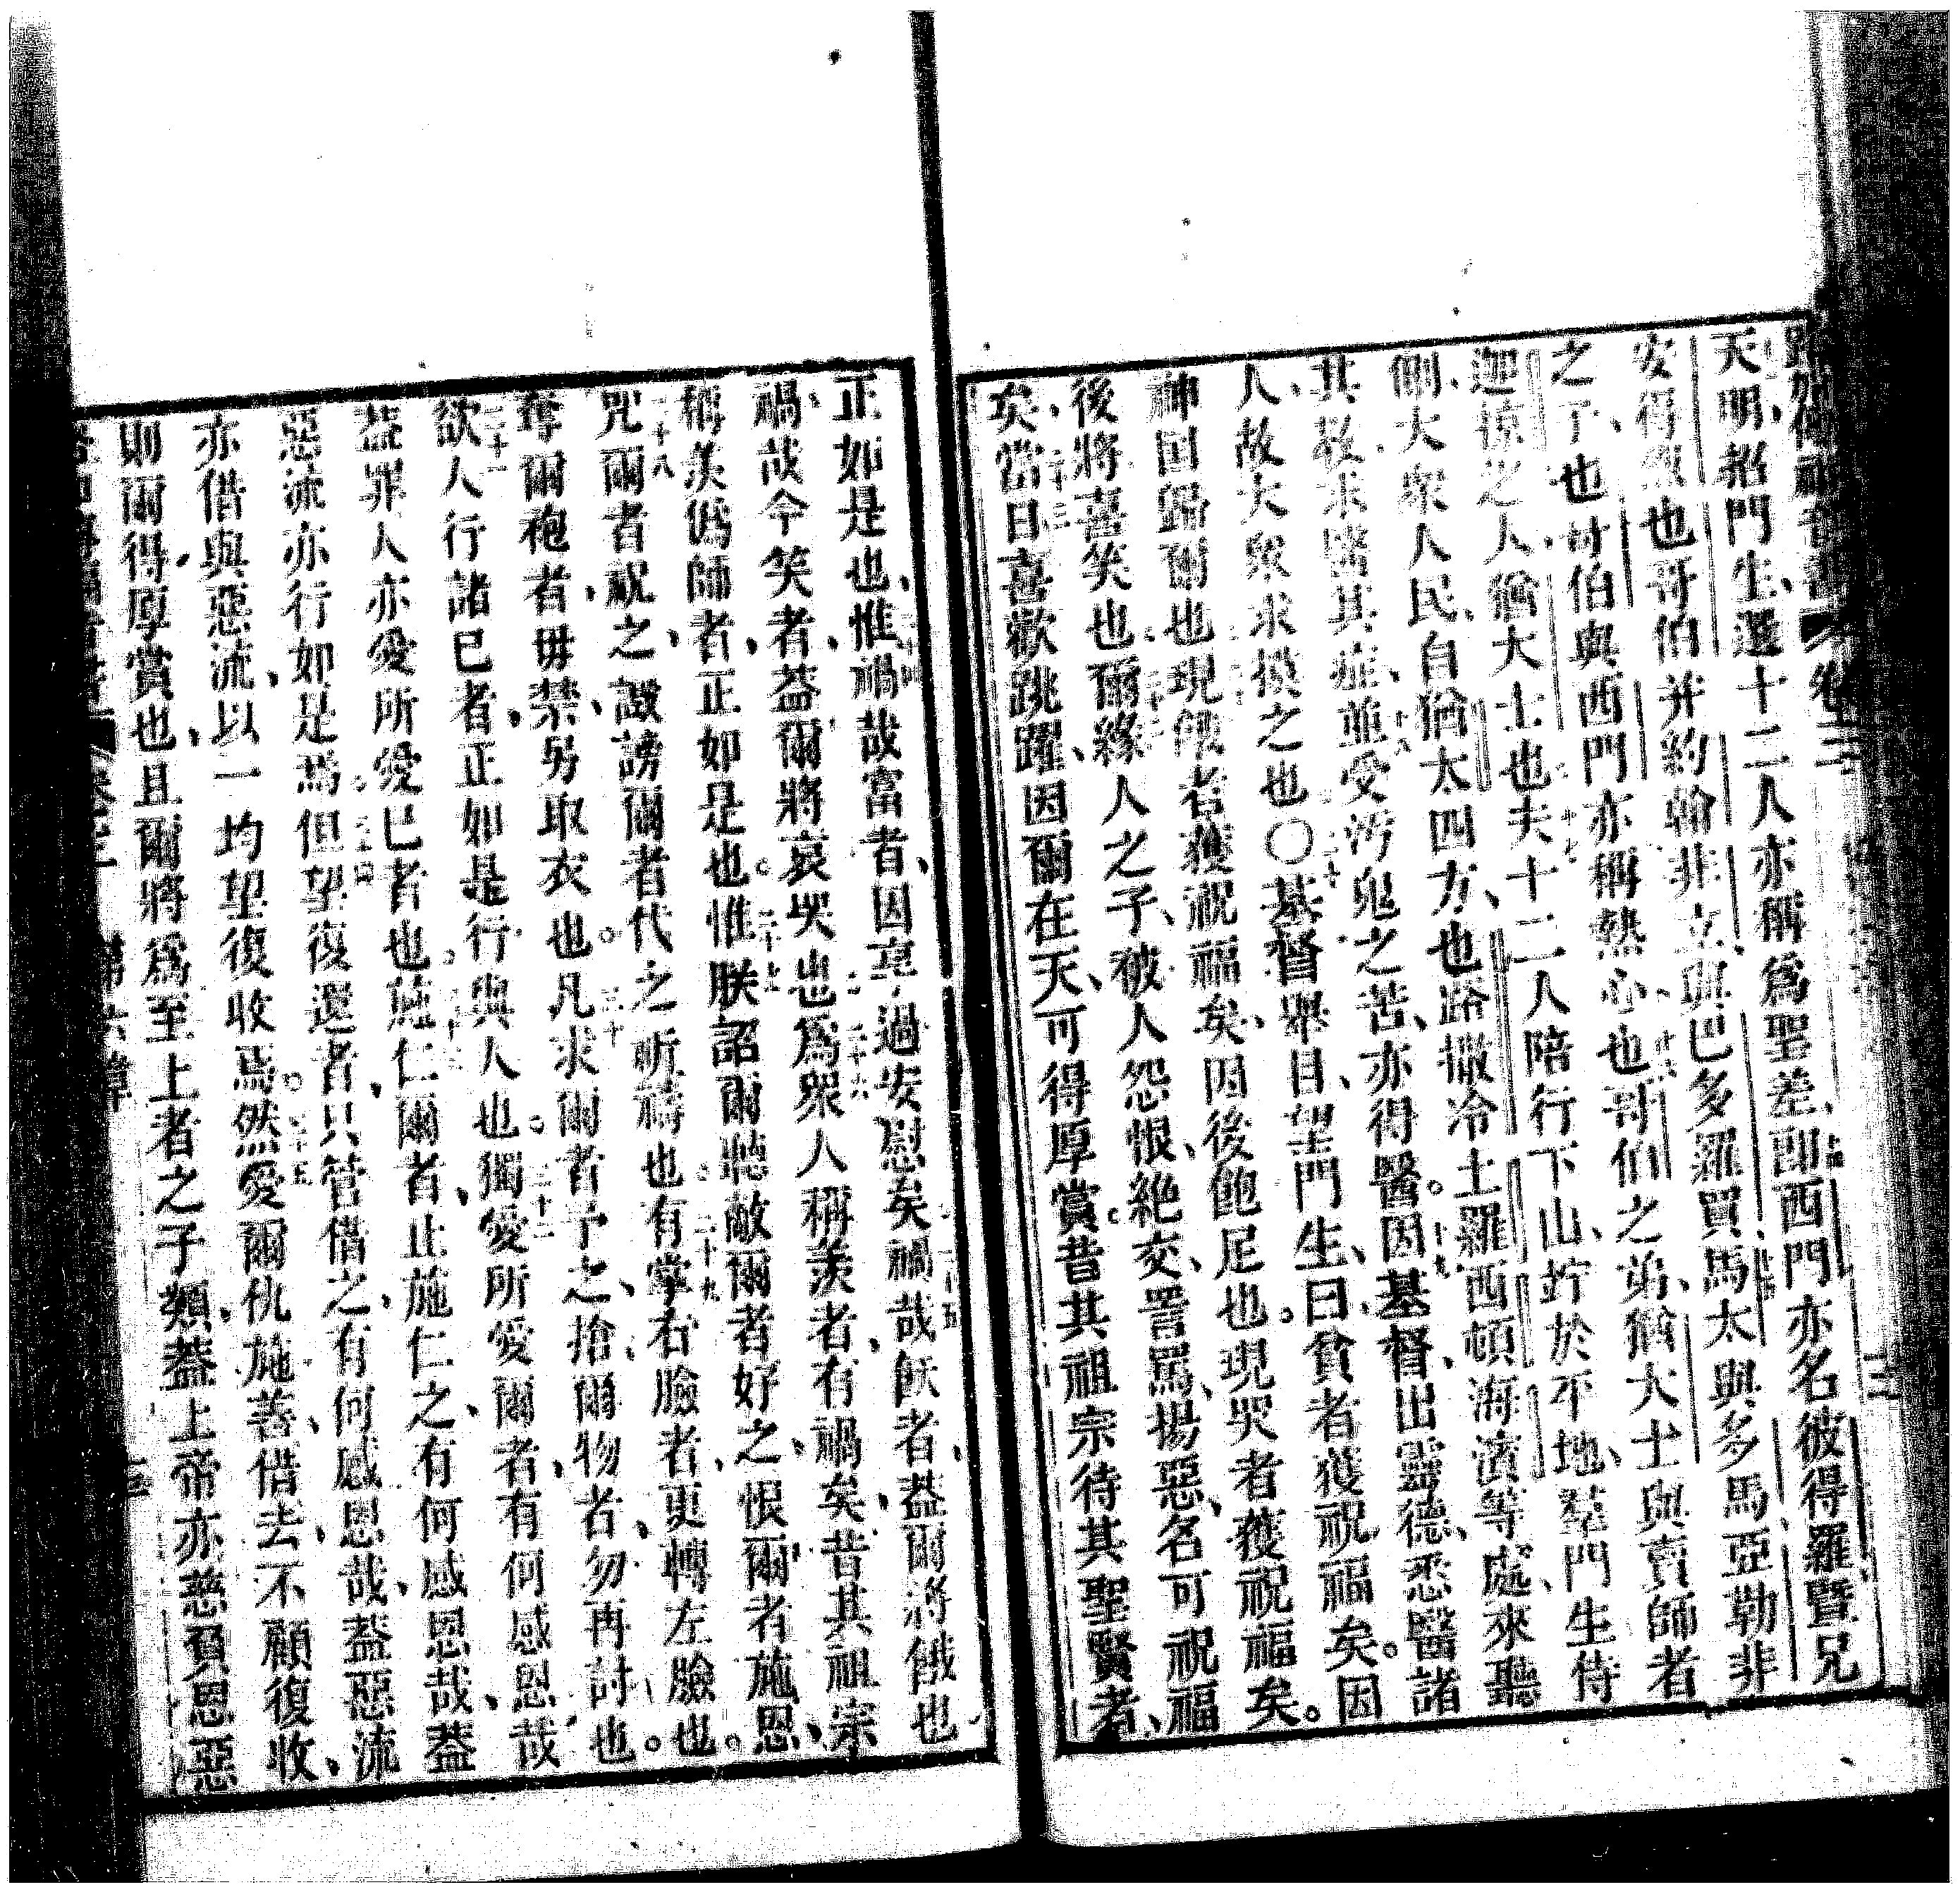 路加傳福音書 卷三
天明、招門生、選十二人、亦稱爲聖差、卽西門亦名彼得羅暨兄
安得烈也哥伯并約翰非立與巴多羅買馬太與多馬亞勒非
之子也哥伯與西門亦稱熱心也哥伯之弟、猶大士與賣師者
迦掠之人猶大士也夫十二人陪行下山、竚於平地、羣門生侍
側、大衆人民、自猶太四方、也路撒冷土羅西頓海濱等處、來聽
其教、求醫其症、並受汚鬼之苦、亦得醫。因基督、出靈德、悉醫諸
人、故大衆求摸之也〇基督舉目、望門生、曰貧者獲祝福矣。因
神囯歸爾也現餓者獲祝福矣、因後飽足也。現哭者獲祝福矣。
後將喜笑也爾緣人之子、被人怨恨、絶交、詈罵、揚惡名、可祝福
矣、當日喜歡跳躍、因爾在天、可得厚賞。昔其祖宗待其聖賢者、
正如是也、惟禍哉富者、因享過安慰矣禍哉飫者、葢爾將餓也
禍哉今笑者、葢爾將哀哭也爲衆人稱羨者、有禍矣、昔其祖宗
稱羨僞師者、正如是也。惟朕詔爾聽、敵爾者好之、恨爾者施恩、
咒爾者祝之、譭謗爾者代之祈禱也。有掌右臉者、更轉左臉也。
奪爾袍者、毋禁、另取衣也。凡求爾者予之、搶爾物者、勿再討也。
欲人行諸已者、正如是行與人也。獨愛所愛爾者、有何感恩哉
葢罪人亦愛所愛巳者也。施仁爾者、止施仁之、有何感恩哉、葢
惡流亦行如是焉。但望復還者、只管借之、有何感恩哉、葢惡流
亦借與惡流、以一均望復收焉。然愛爾仇施善、借去、不顧復收、
則爾得厚賞也、且爾將爲至上者之子類、葢上帝亦慈負恩惡
卷三 第六章